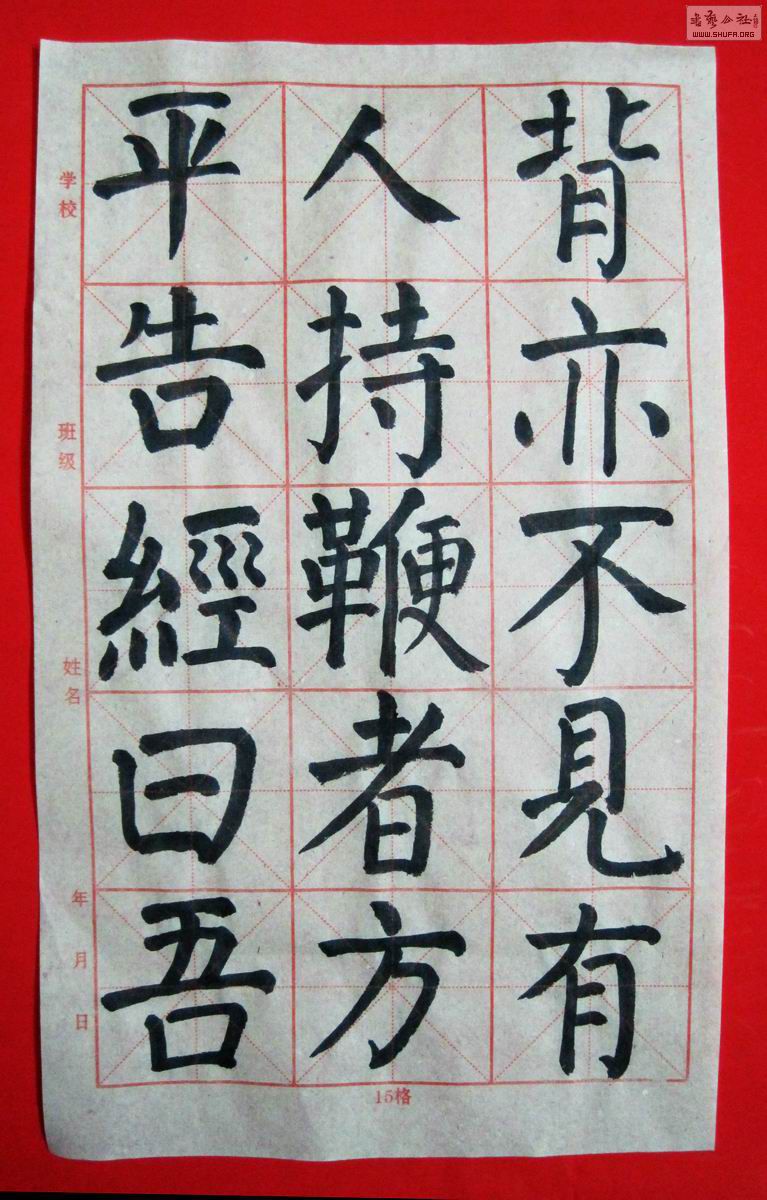 背亦不見有
人持鞭者方
平告經曰吾
学校
班级
姓名
年月日
15格
WWW.SHUFA.ORG